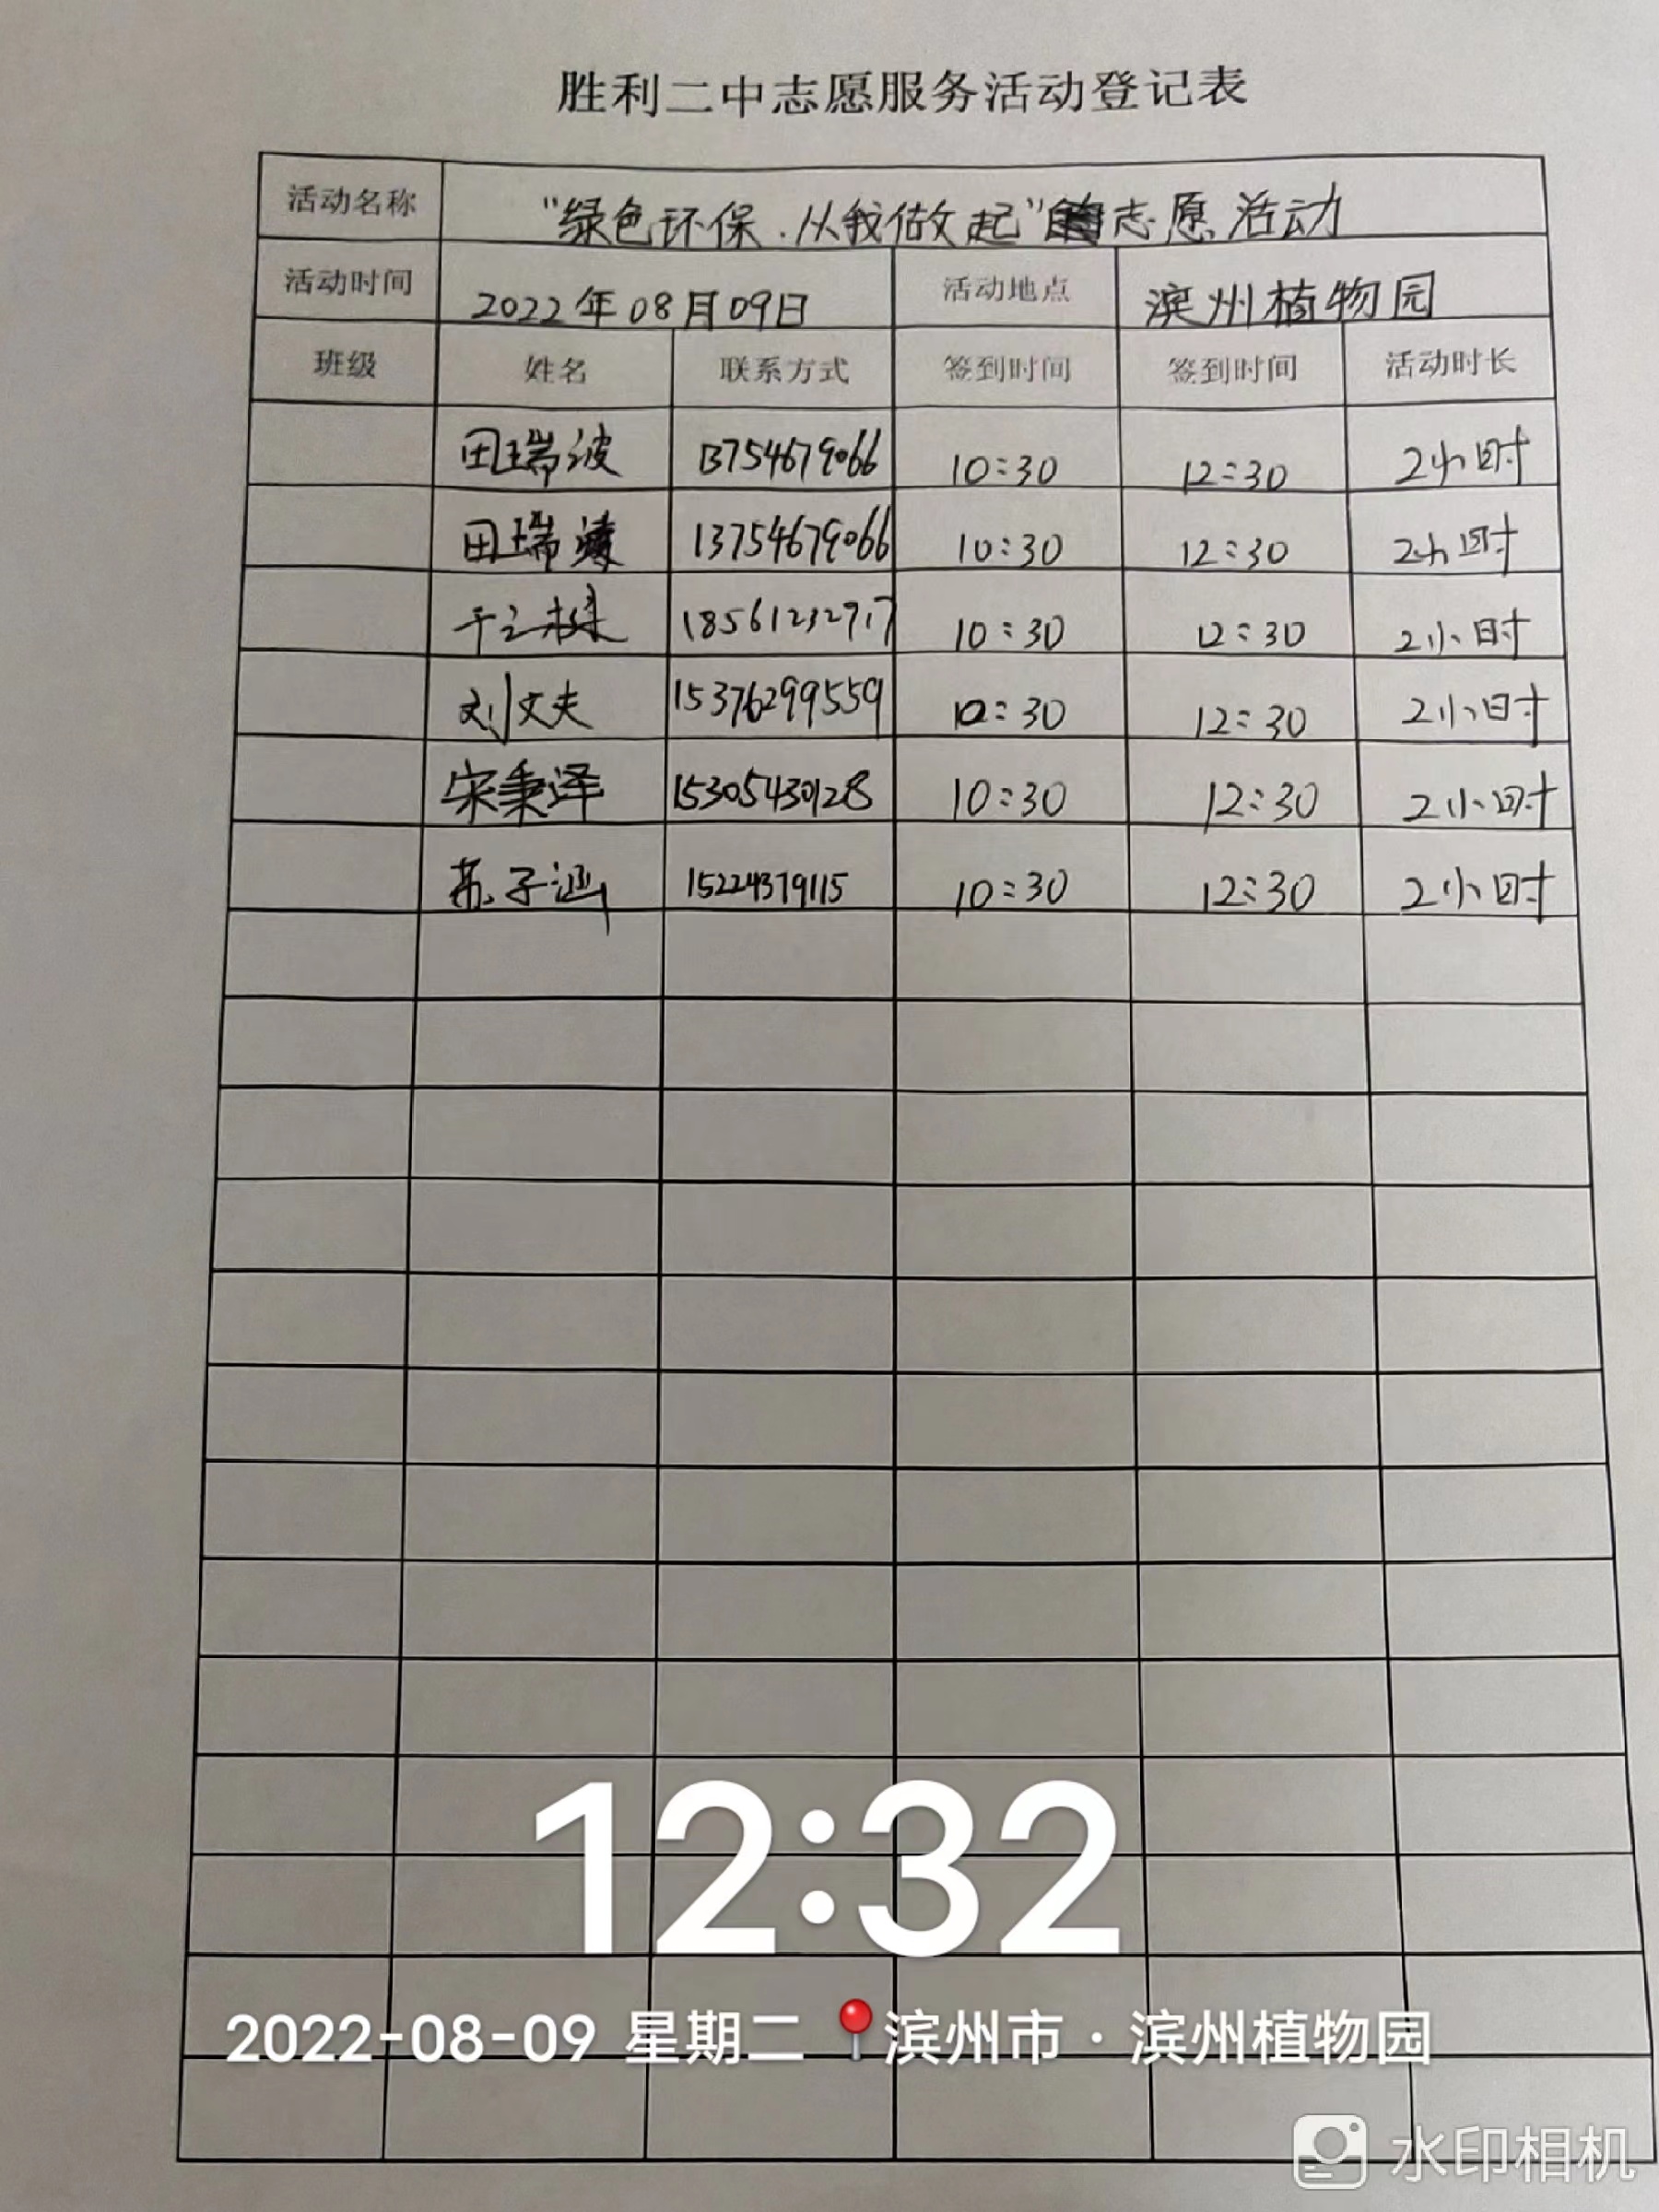 胜利二中志愿服务活动登记表
活动名称 “绿色环保.从我做起”志愿活动
活动时间 2022年08月09日 活动地点 滨州植物园
班级 姓名 联系方式 签到时间 签到时间 活动时长
田瑞波 13754679066 10:30 12:30 2小时
田瑞 13754679066 10:30 12:30 2小时
于之栋 18561232717 10:30 12:30 2小时
刘文夫 15376299559 10:30 12:30 2小时
宋秉泽 15305430128 10:30 12:30 2小时
苏子涵 15224379115 10:30 12:30 2小时
12:32
2022-08-09 星期二 滨州市·滨州植物园
水印相机